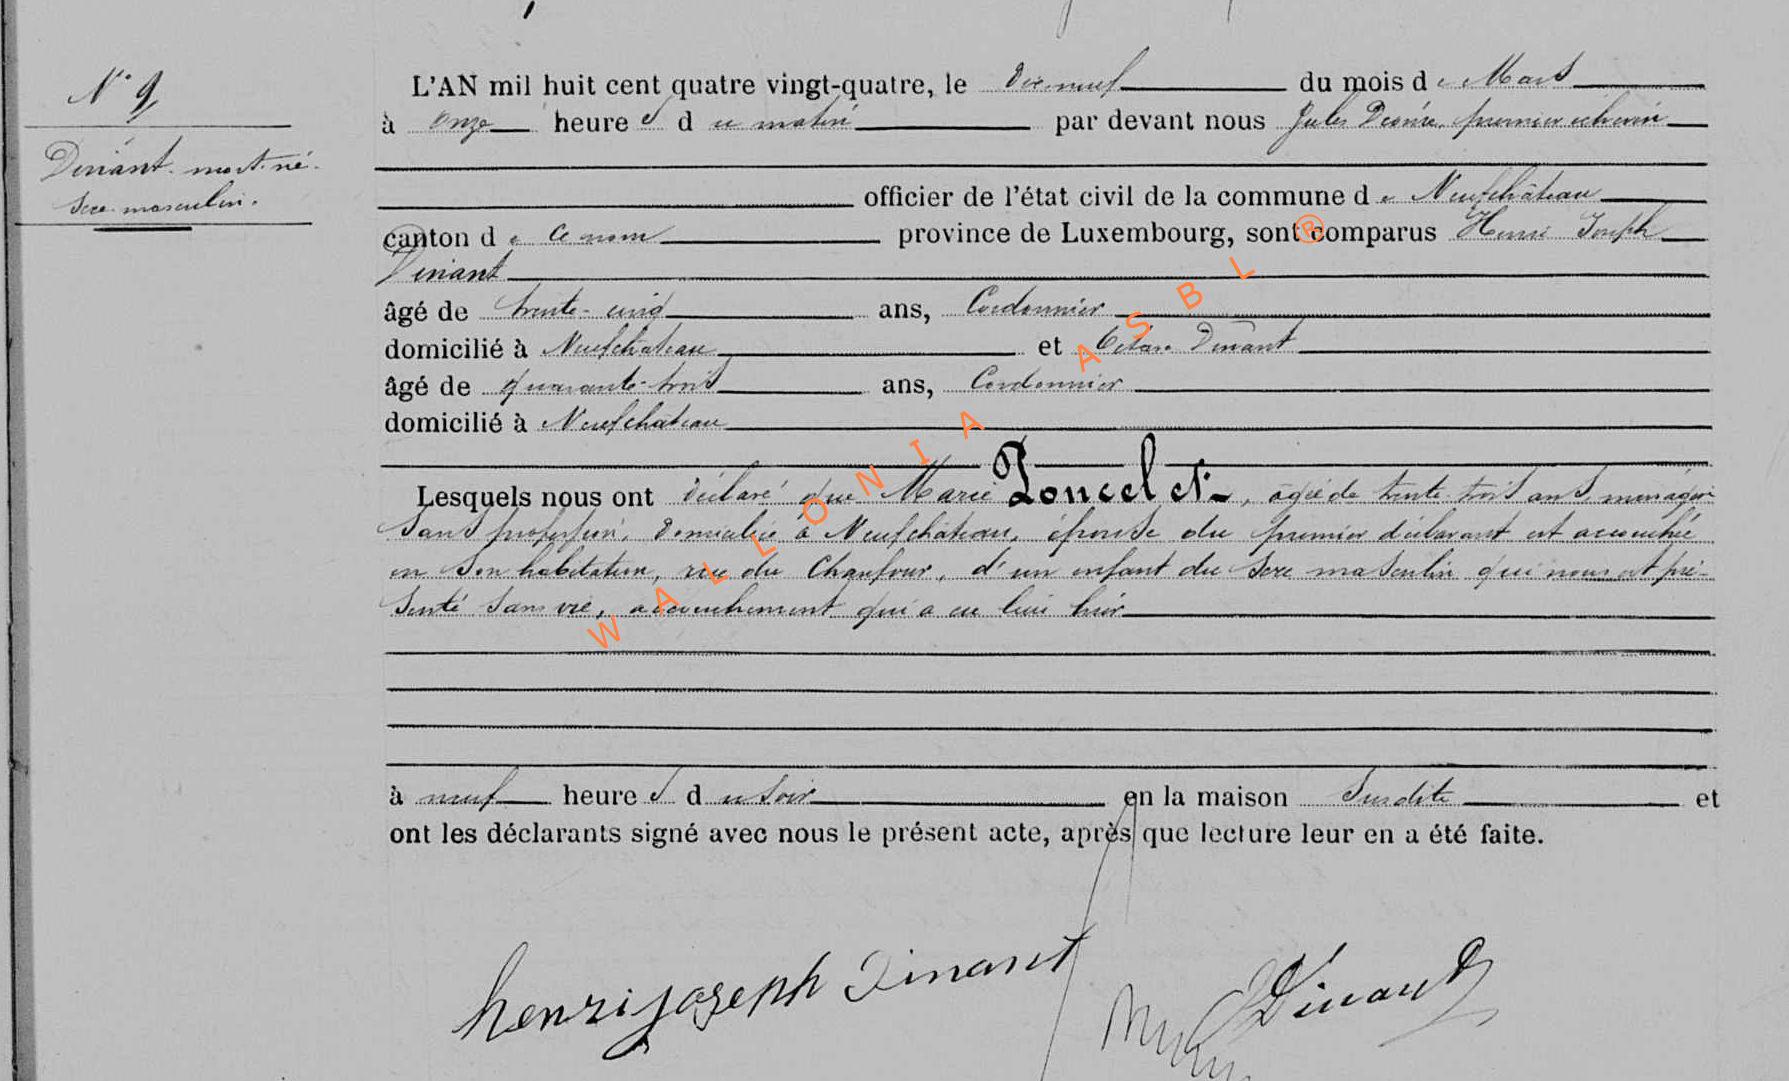 N° 9
Dinant mort-né.
sexe masculin.
L'AN mil huit cent quatre vingt-quatre, le dix-neuf du mois de Mars
à onze heures du matin par devant nous Jules Désiré, premier échevin
officier de l'état civil de la commune de Neufchâteau
canton de ce nom province de Luxembourg, sont comparus Henri Joseph
Dinant
âgé de trente-cinq ans, Cordonnier
domicilié à Neufchâteau et Dinant
âgé de quarante-trois ans, Cordonnier
domicilié à Neufchâteau
Lesquels nous ont déclaré que Marie Poncelet, âgée de trente-trois ans, ménagère
sans profession, domiciliée à Neufchâteau, épouse du premier déclarant est accouchée
en son habitation, rue du Chaufour, d'un enfant du sexe masculin qui nous est pré-
senté sans vie, accouchement qui a eu lieu hier
à neuf heures du soir en la maison susdite et
ont les déclarants signé avec nous le présent acte, après que lecture leur en a été faite.
henri joseph Dinant
Dinant
WALLONIA ASBL ®